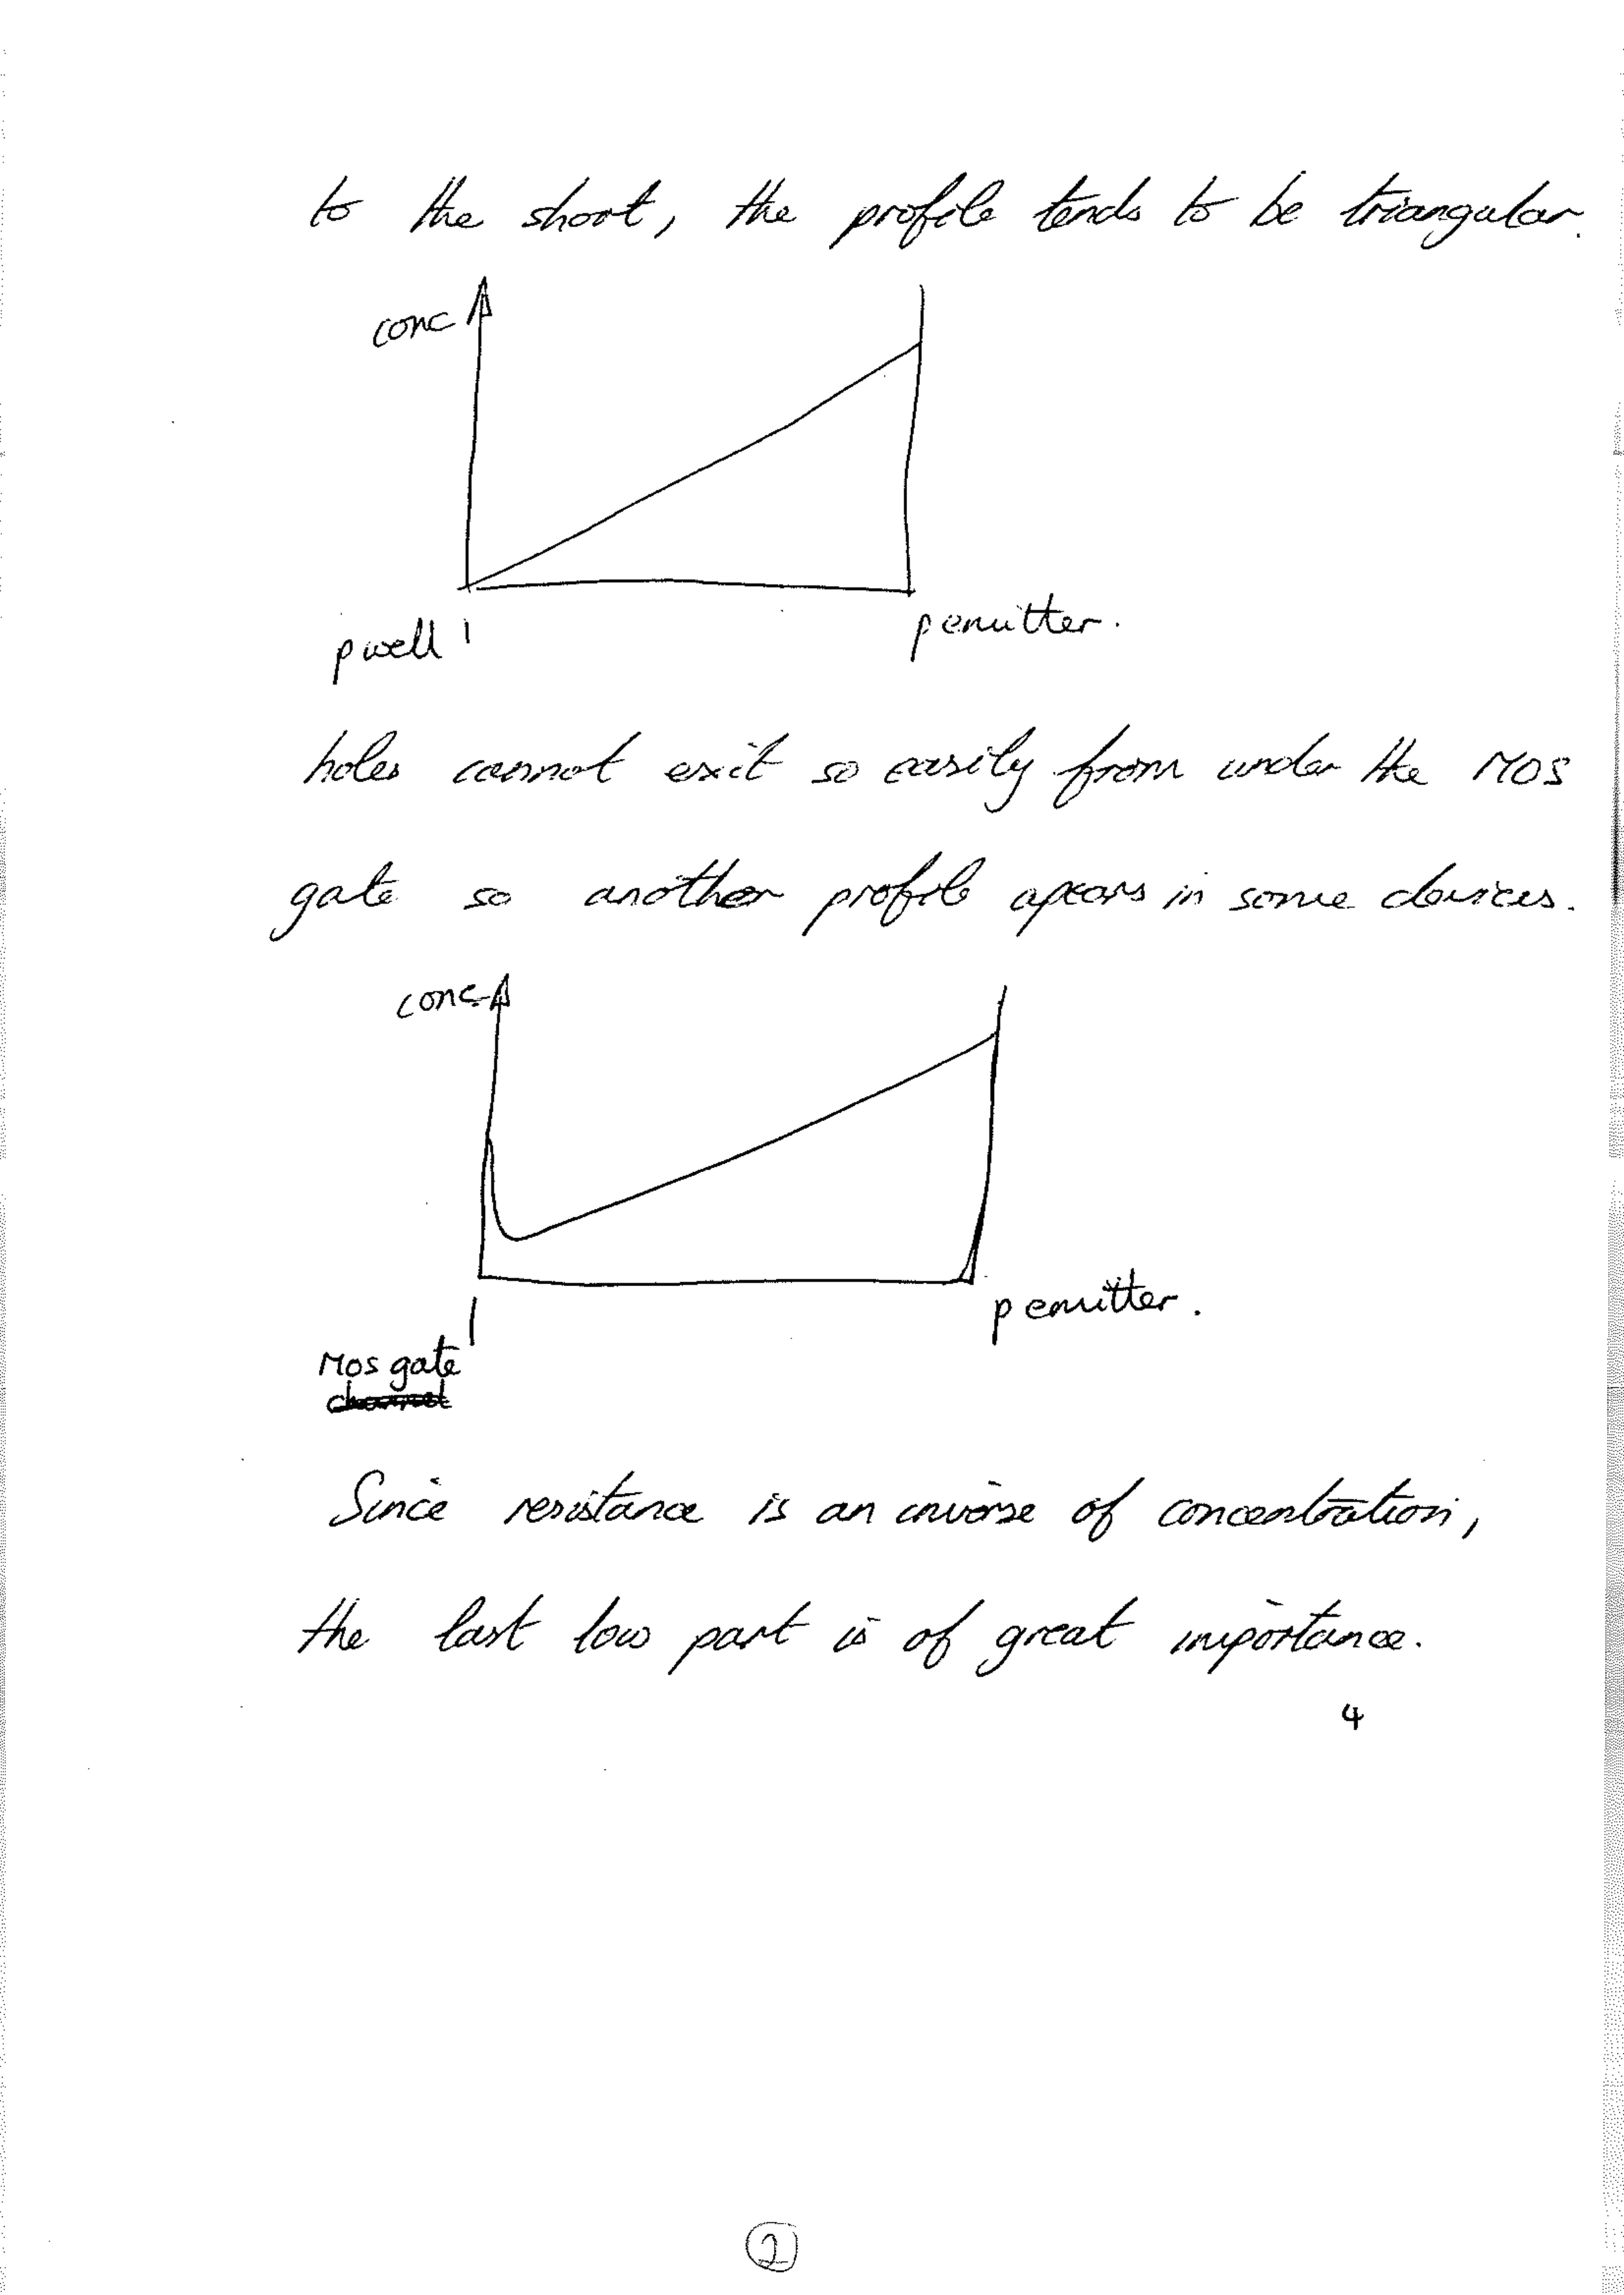 to the short, the profile tends to be triangular.
conc
p well
p emitter.
holes cannot exit so easily from under the MOS
gate so another profile apears in some devices.
conc
p emitter.
Mos gate
channel
Since resistance is an inverse of concentration,
the last low part is of great importance.
4
2